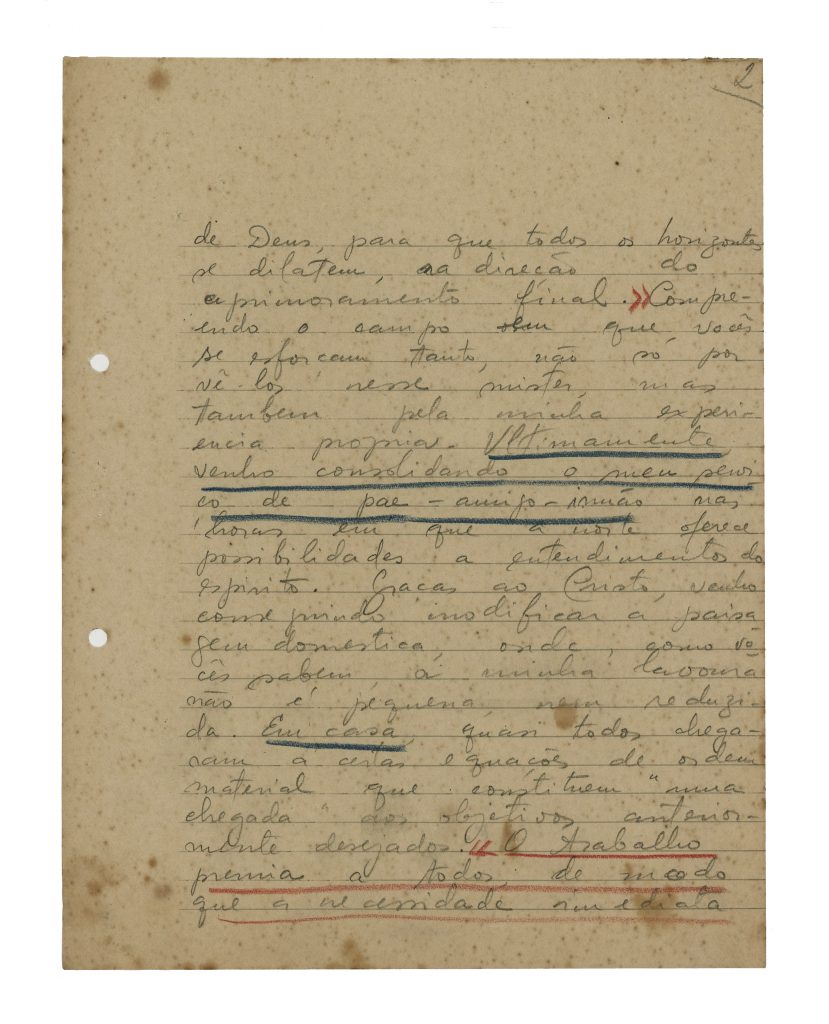 2
de Deus, para que todos os horizontes
se dilatem, na direção do
aprimoramento final. »Compre-
endo o campo em que vocês
se esforcam tanto, não só por
vê-los nesse mister, mas
tambem pela minha experi-
encia propria. Ultimamente
venho consolidando o meu servi-
co de pae-amigo-irmão nas
horas em que a noite oferece
possibilidades a entendimentos do
espirito. Graças ao Cristo, venho
conseguindo modificar a paisa
gem domestica, onde, como vo-
cês sabem a minha lavoura
não é pequena, nem reduzi-
da. Em casa, quasi todos chega-
ram a certas equações de ordem
material que constituem "uma
chegada" aos objetivos anterior-
mente desejados. « O trabalho
premia a todos, de modo
que a necessidade imediata